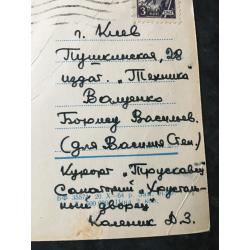 3
г. Киев
Пушкинская, 28
издат. „Техника"
Ващенко
Борису Василев.
(для Василия Степ.)
Курорт „Трускавец
Санаторий „Хрусталь-
ный дворец
Каленик Д.З.